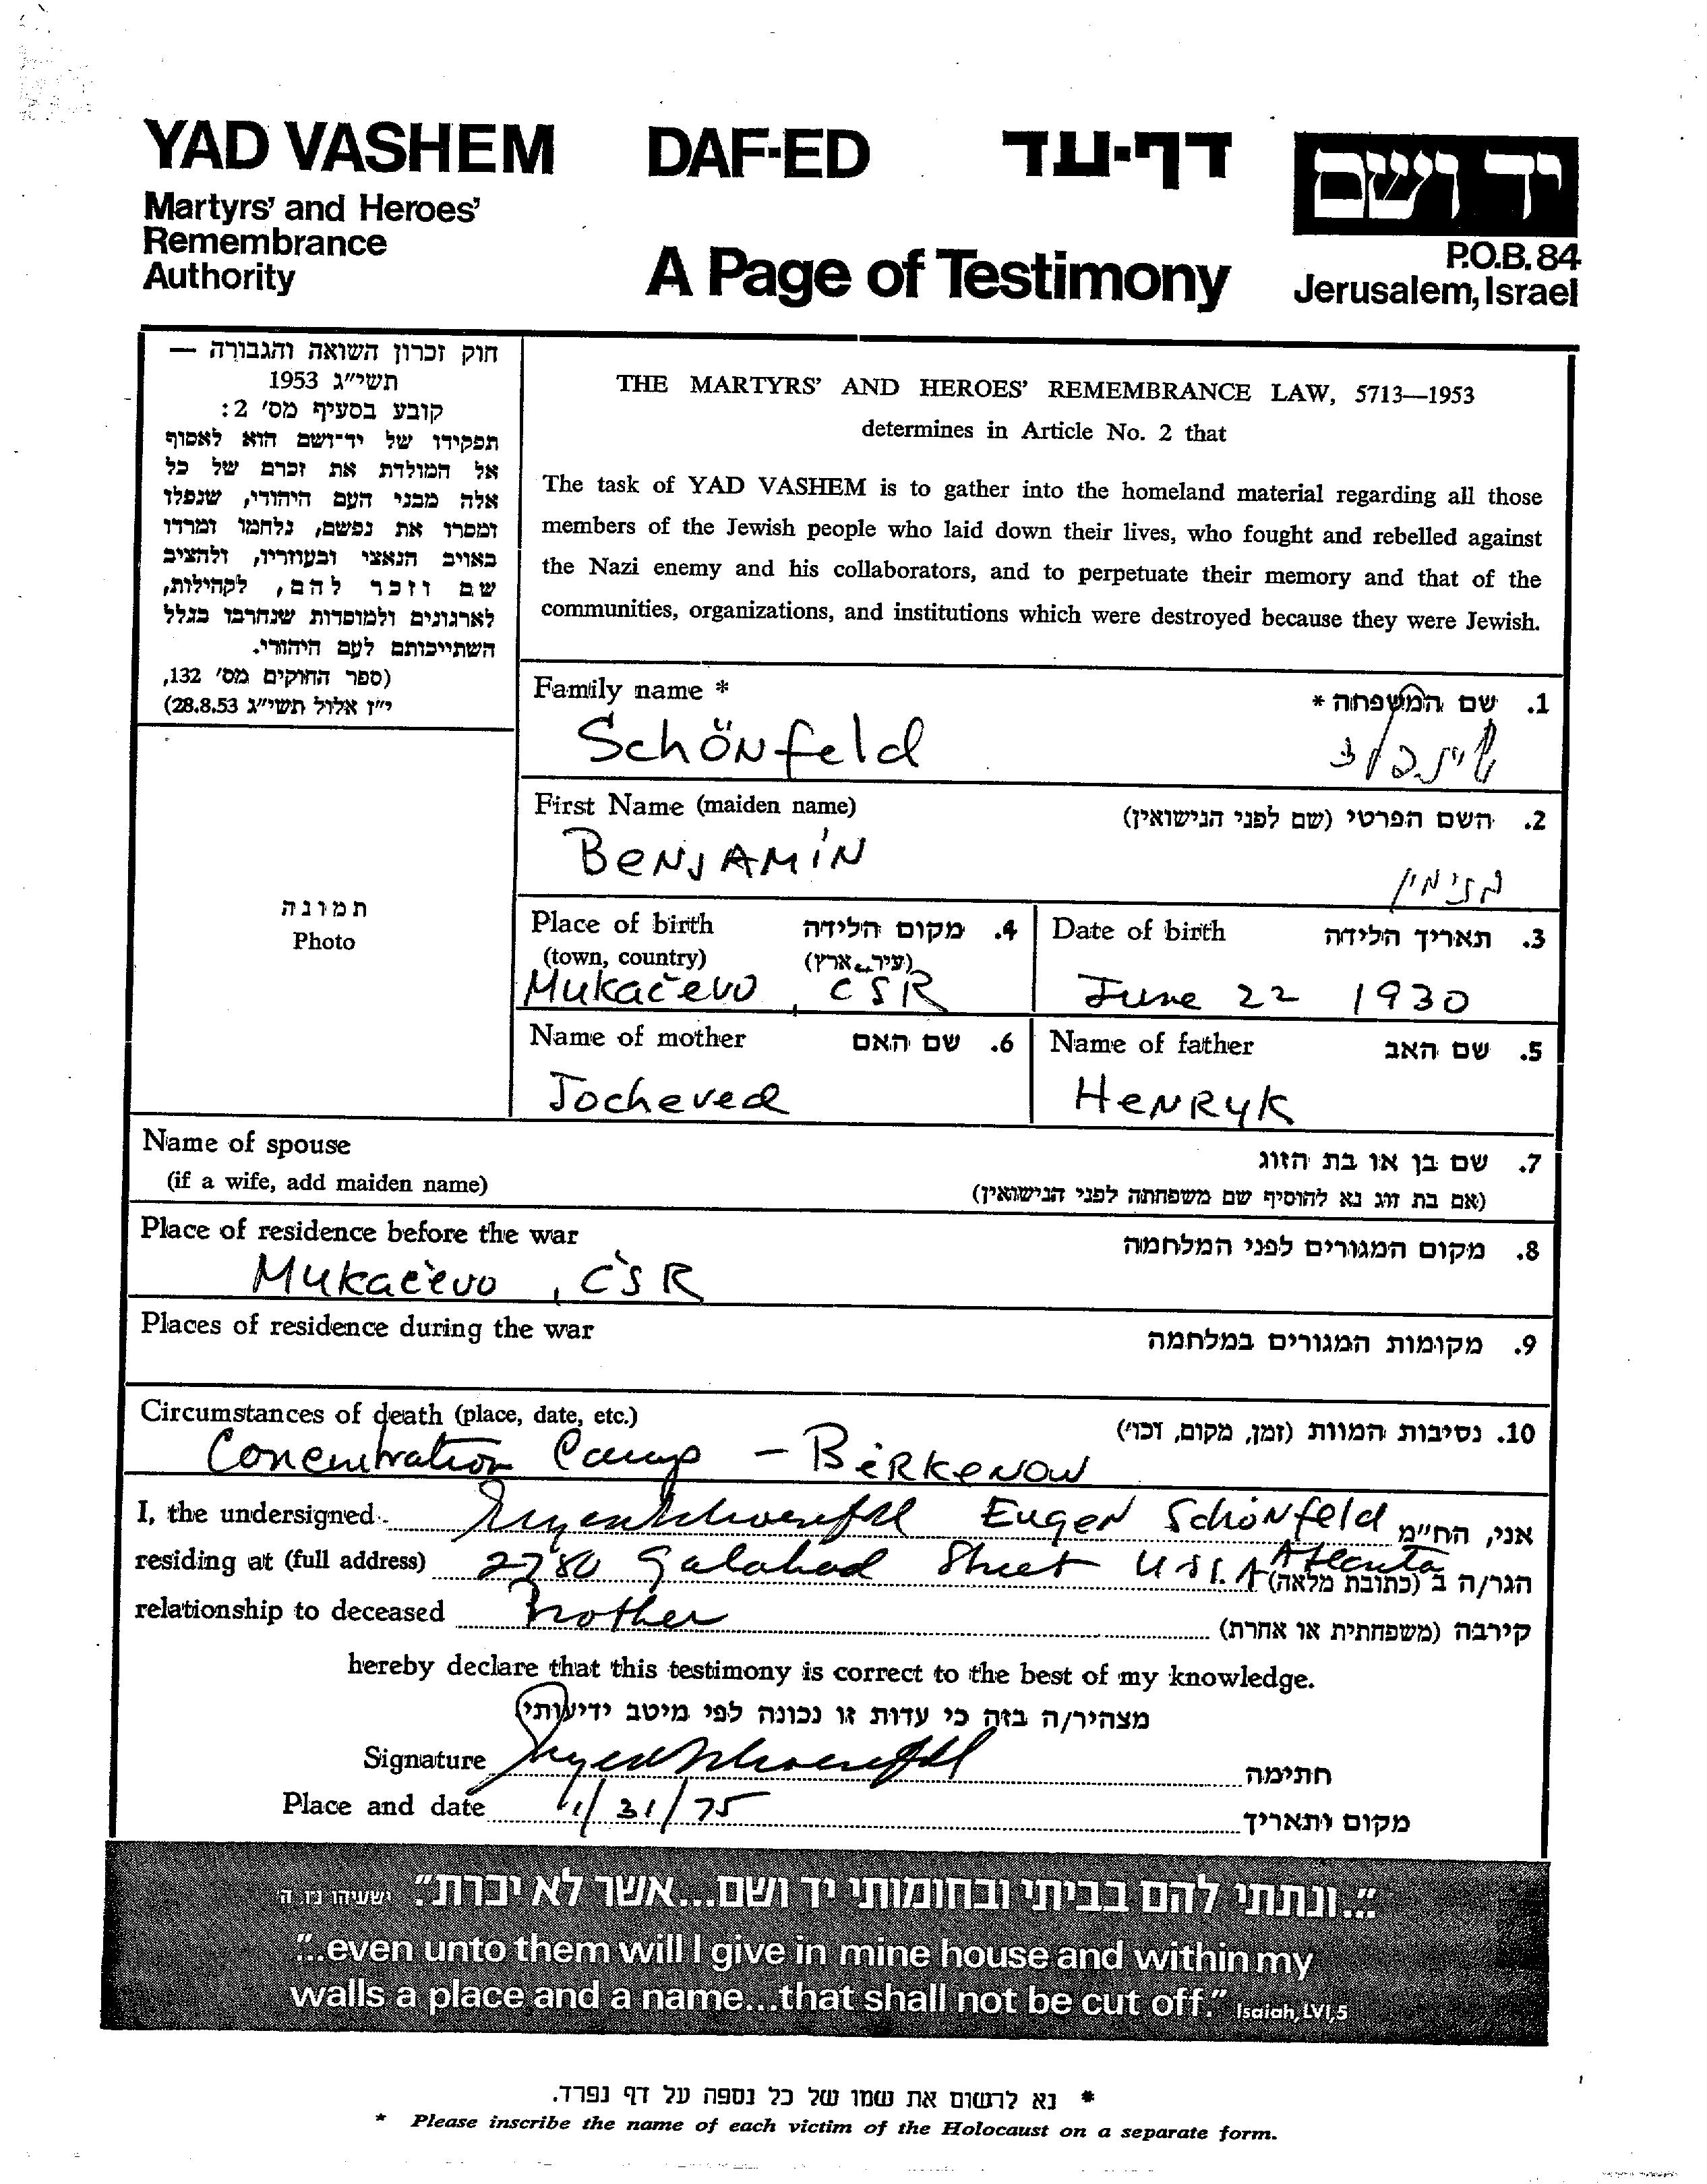 YAD VASHEM DAF-ED דף-עד יד ושם
Martyrs' and Heroes'
Remembrance
Authority
A Page of Testimony
P.O.B. 84
Jerusalem, Israel
חוק זכרון השואה והגבורה —
תשי"ג 1953
קובע בסעיף מס' 2:
תפקידו של יד-ושם הוא לאסוף
אל המולדת את זכרם של כל
אלה מבני העם היהודי, שנפלו
ומסרו את נפשם, נלחמו ומרדו
באויב הנאצי ובעוזריו, ולהציב
שם וזכר להם, לקהילות,
לארגונים ולמוסדות שנחרבו בגלל
השתייכותם לעם היהודי.
(ספר החוקים מס' 132,
י"ז אלול תשי"ג 28.8.53)
THE MARTYRS' AND HEROES' REMEMBRANCE LAW, 5713—1953
determines in Article No. 2 that
The task of YAD VASHEM is to gather into the homeland material regarding all those
members of the Jewish people who laid down their lives, who fought and rebelled against
the Nazi enemy and his collaborators, and to perpetuate their memory and that of the
communities, organizations, and institutions which were destroyed because they were Jewish.
תמונה
Photo
Family name * 1. שם המשפחה *
Schönfeld
First Name (maiden name) 2. השם הפרטי (שם לפני הנישואין)
BENJAMIN בנימין
Place of birth 4. מקום הלידה
(town, country) (עיר, ארץ)
Mukačevo, ČSR
Date of birth 3. תאריך הלידה
June 22 1930
Name of mother 6. שם האם
Jocheved
Name of father 5. שם האב
HENRYK
Name of spouse 7. שם בן או בת הזוג
(if a wife, add maiden name) (אם בת זוג נא להוסיף שם משפחתה לפני הנישואין)
Place of residence before the war 8. מקום המגורים לפני המלחמה
Mukačevo, ČSR
Places of residence during the war 9. מקומות המגורים במלחמה
Circumstances of death (place, date, etc.) 10. נסיבות המוות (זמן, מקום, וכו')
Concentration Camp - BIRKENOW
I, the undersigned Eugen Schönfeld אני, הח"מ
residing at (full address) 2780 Galahad Street U.S.A Atlanta הגר/ה ב (כתובת מלאה)
relationship to deceased Brother קירבה (משפחתית או אחרת)
hereby declare that this testimony is correct to the best of my knowledge.
מצהיר/ה בזה כי עדות זו נכונה לפי מיטב ידיעותי
Signature חתימה
Place and date 1/31/75 מקום ותאריך
"...ונתתי להם בביתי ובחומותי יד ושם...אשר לא יכרת". ישעיהו נ"ו ה'
"...even unto them will I give in mine house and within my
walls a place and a name...that shall not be cut off." Isaiah, LVI,5
* נא לרשום את שמו של כל נספה על דף נפרד.
* Please inscribe the name of each victim of the Holocaust on a separate form.